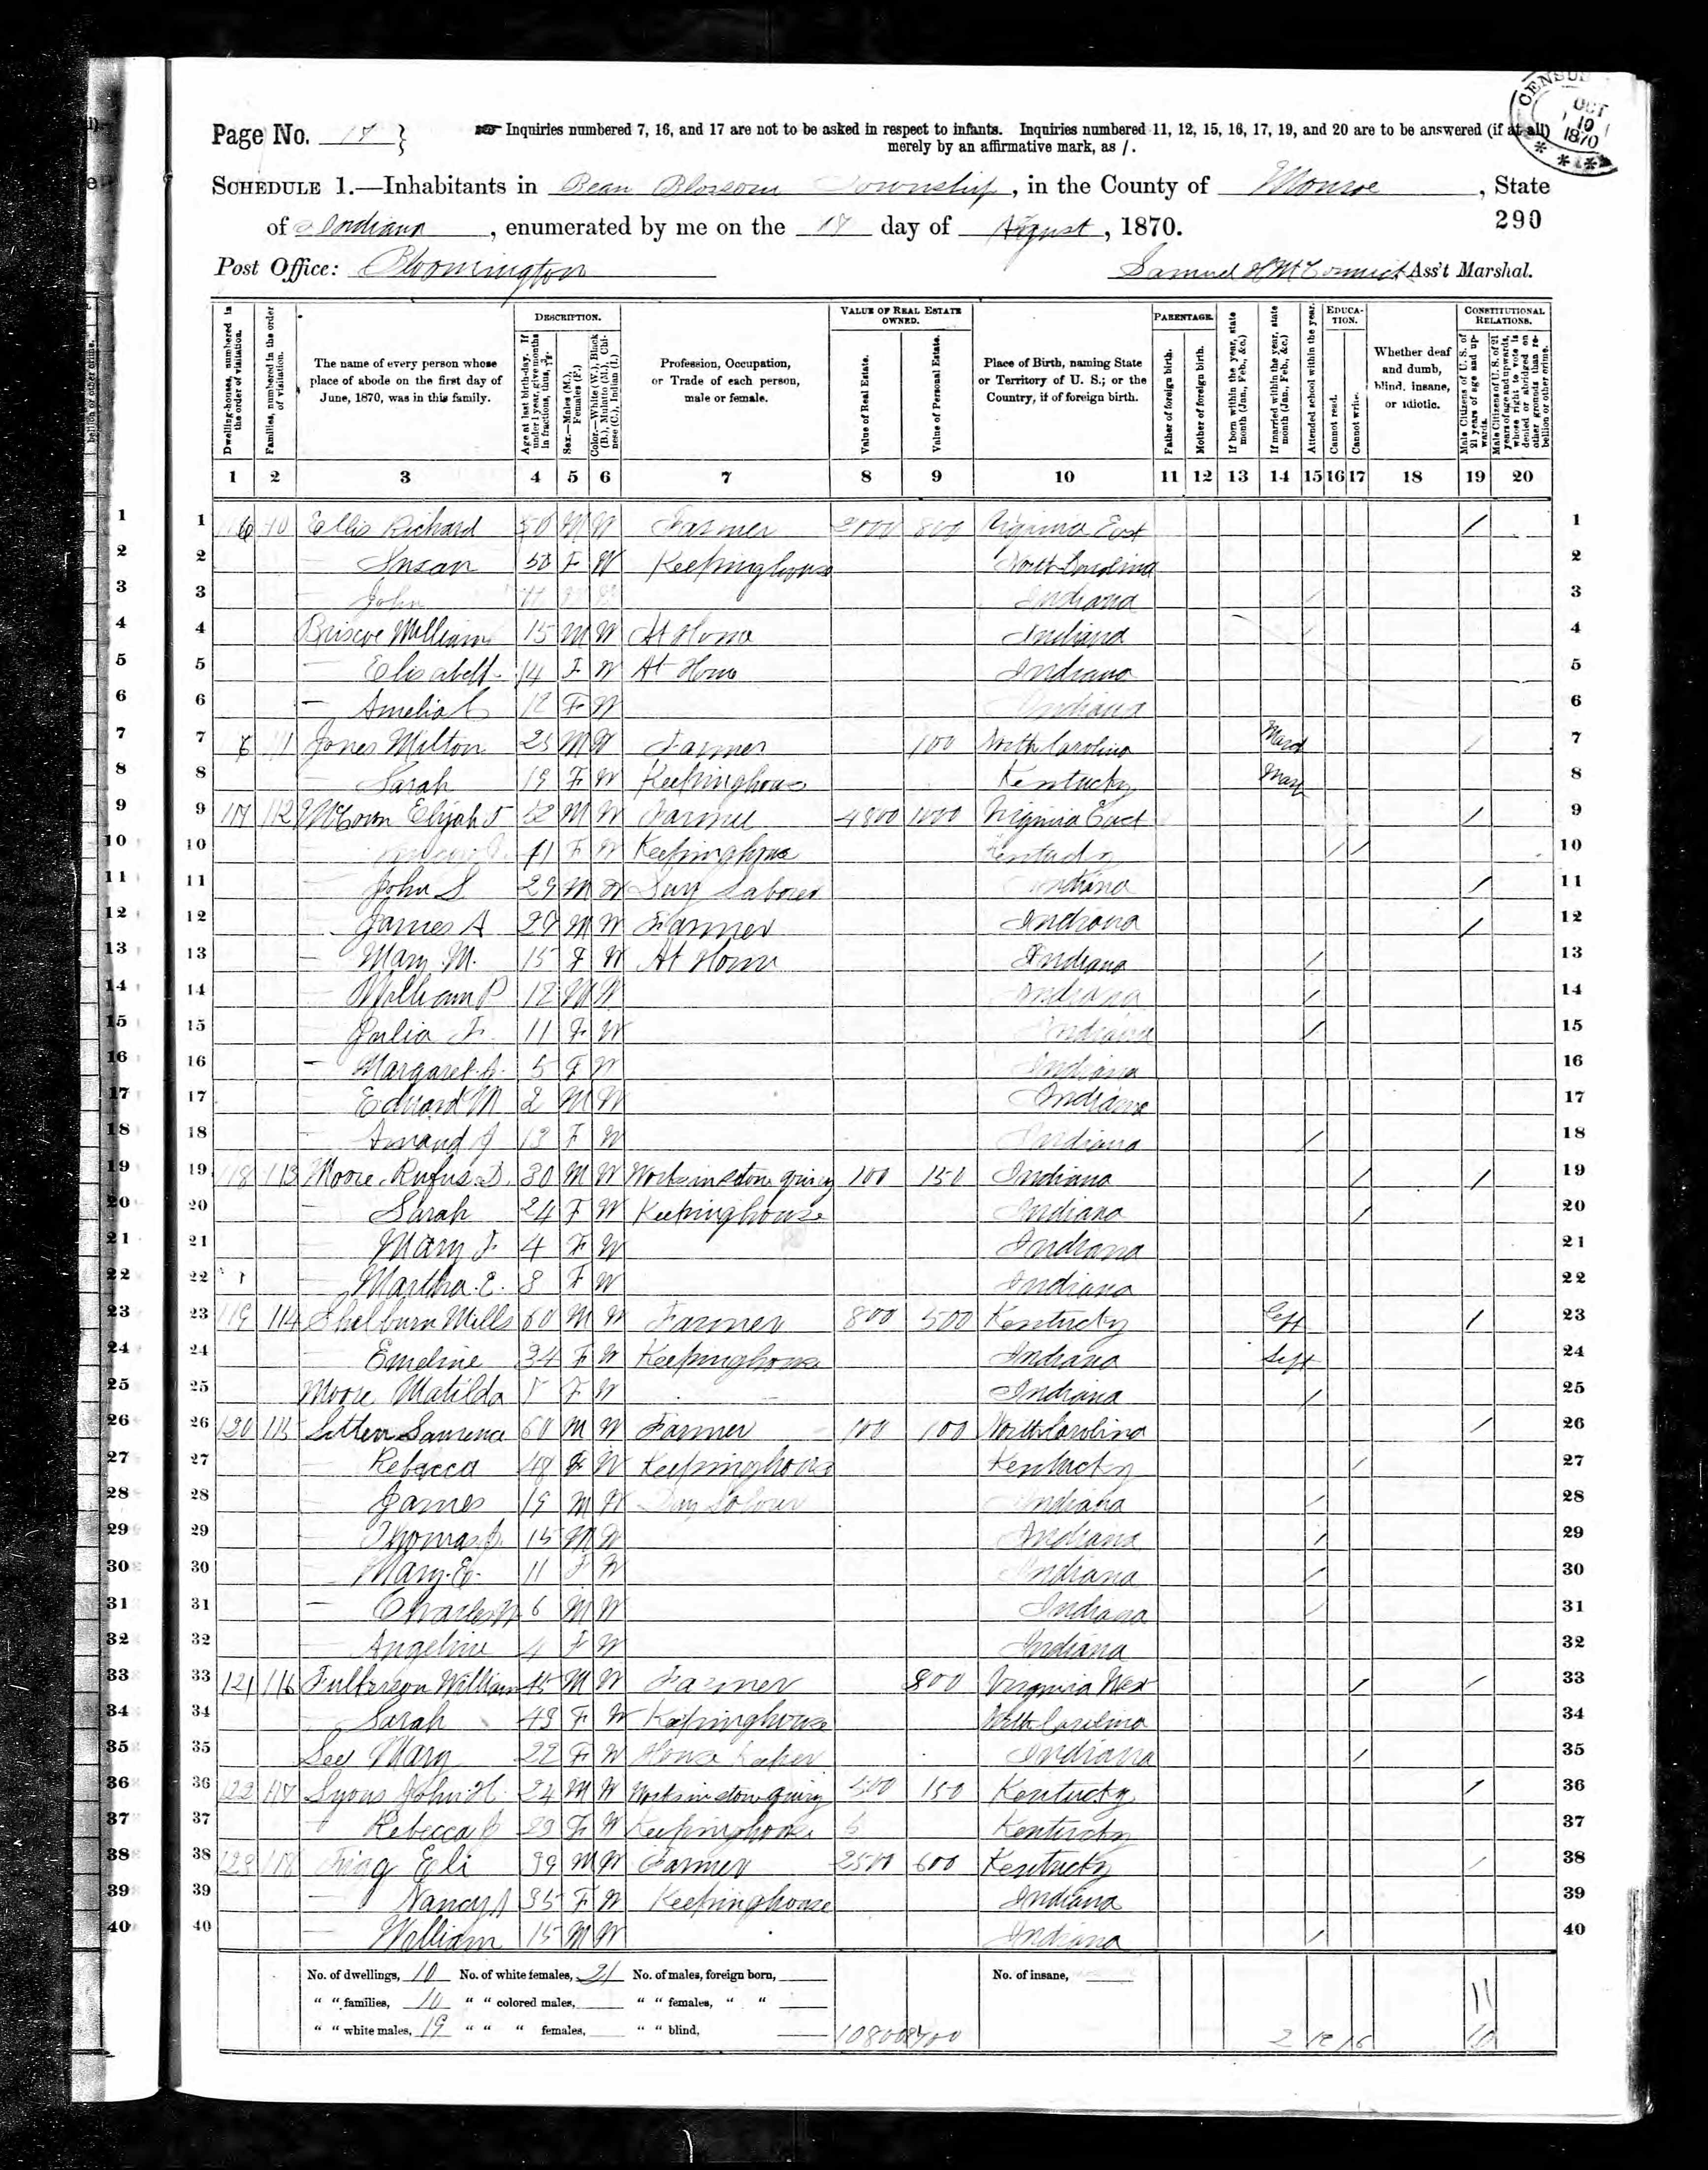 CENSUS OCT 10 1870
Page No. 17
Inquiries numbered 7, 16, and 17 are not to be asked in respect to infants. Inquiries numbered 11, 12, 15, 16, 17, 19, and 20 are to be answered (if at all)
merely by an affirmative mark, as /.
SCHEDULE 1.—Inhabitants in Bean Blossom Township, in the County of Monroe, State
of Indiana, enumerated by me on the day of August, 1870.
290
Post Office: Bloomington
Samuel McCormick, Ass't Marshal.
Dwelling-houses, numbered in the order of visitation.
Families, numbered in the order of visitation.
The name of every person whose place of abode on the first day of June, 1870, was in this family.
DESCRIPTION.
Age at last birth-day. If under 1 year, give months in fractions, thus, 3/12.
Sex.—Males (M.), Females (F.)
Color.—White (W.), Black (B.), Mulatto (M.), Chinese (C.), Indian (I.)
Profession, Occupation, or Trade of each person, male or female.
VALUE OF REAL ESTATE OWNED.
Value of Real Estate.
Value of Personal Estate.
Place of Birth, naming State or Territory of U. S.; or the Country, if of foreign birth.
PARENTAGE.
Father of foreign birth.
Mother of foreign birth.
If born within the year, state month (Jan., Feb., &c.)
If married within the year, state month (Jan., Feb., &c.)
Attended school within the year.
EDUCATION.
Cannot read.
Cannot write.
Whether deaf and dumb, blind, insane, or idiotic.
CONSTITUTIONAL RELATIONS.
Male Citizens of U. S. of 21 years of age and upwards.
Male Citizens of U. S. of 21 years of age and upwards, whose right to vote is denied or abridged on other grounds than rebellion or other crime.
1 2 3 4 5 6 7 8 9 10 11 12 13 14 15 16 17 18 19 20
1 Ellis Richard 50 M W Farmer 2000 800 Virginia East / 1
2 — Susan F W Keepinghouse North Carolina 2
3 — John Indiana 3
4 Briscoe William 15 M W At Home Indiana 4
5 — Elisabeth 14 F W At Home Indiana 5
6 — Amelia C 12 F W Indiana 6
7 111 Jones Milton 23 M W Farmer 100 North Carolina / 7
8 — Sarah 19 F W Keepinghouse Kentucky 8
9 117 112 McCown Elijah 52 M W Farmer 4800 1000 Virginia East / 9
10 41 F W Keepinghouse Kentucky / / 10
11 — John S 29 M W Day Laborer Indiana / 11
12 — James A M W Farmer Indiana / 12
13 — Mary M. 15 F W At Home Indiana / 13
14 — William P 12 M W Indiana / 14
15 — Julia F. 11 F W Indiana / 15
16 — Margaret A. 5 F W Indiana 16
17 — Edward M 2 M W Indiana 17
18 — Amand J 13 F W Indiana / 18
19 118 113 Moore Rufus D. 30 M W Works in stone quiry 100 150 Indiana / / 19
20 — Sarah 24 F W Keepinghouse Indiana / 20
21 — Mary F 4 F W Indiana 21
22 — Martha E. F W Indiana 22
23 119 114 Shelburn Mills 60 M W Farmer 800 500 Kentucky Sept / 23
24 — Emeline 34 F W Keepinghouse Indiana Sept 24
25 Moore Matilda F W Indiana / 25
26 120 115 60 M W Farmer 100 100 North Carolina / 26
27 — Rebecca 48 F W Keepinghouse Kentucky / 27
28 — James 19 M W Day Labourer Indiana / 28
29 — Thomas J. 15 M W Indiana / 29
30 — Mary E. 11 F W Indiana / 30
31 — Charles W 6 M W Indiana / 31
32 — Angeline 4 F W Indiana 32
33 121 116 Fulkerson William 45 M W Farmer 800 Virginia West / / 33
34 — Sarah 43 F W Keepinghouse North Carolina 34
35 See Mary 22 F W House Keeper Indiana / 35
36 122 117 Lyons John H. 24 M W Works in stone quiry 500 150 Kentucky / 36
37 — Rebecca J 23 F W Keepinghouse Kentucky 37
38 123 118 Eli 39 M W Farmer 2500 600 Kentucky / 38
39 — Nancy A 35 F W Keepinghouse Indiana 39
40 — William 15 M W Indiana / 40
No. of dwellings, 10 No. of white females, 21 No. of males, foreign born, No. of insane,
" " families, 10 " " colored males, " " females, " " 11
" " white males, 19 " " " females, " " blind, 10800 2